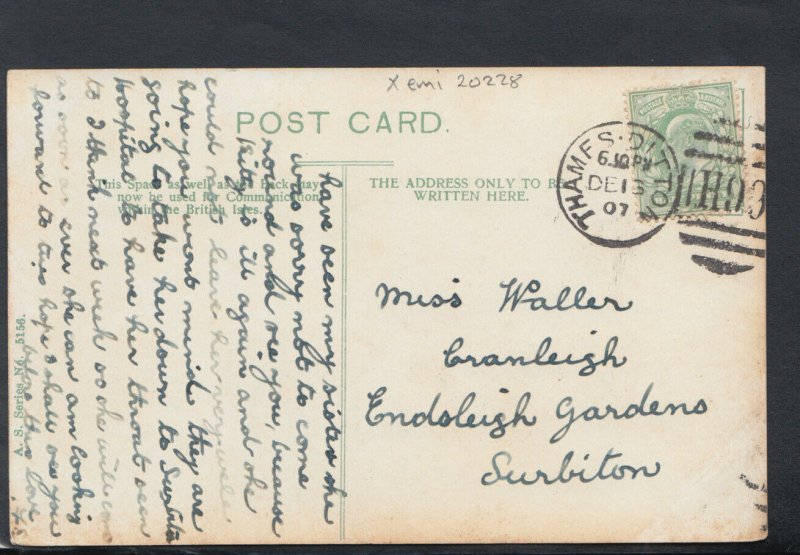 X emi 20228
POST CARD.
This Space as well as the Back may
now be used for Communication
within the British Isles.
THE ADDRESS ONLY TO BE
WRITTEN HERE.
POSTAGE
THAMES-DITTON
6.30PM
DE 16
07
H93
Miss Waller
Cranleigh
Endsleigh Gardens
Surbiton
have seen my sister she
was sorry not to come
round and see you, because
Kitty is ill again and she
could not leave her very well
hope you wont mind they are
going to take her down to Surbiton
Hospital to have her throat seen
to I think next week so she will come
as soon as ever she can am looking
forward to this hope I shall see you
before this love
A. S. Series No. 5156.